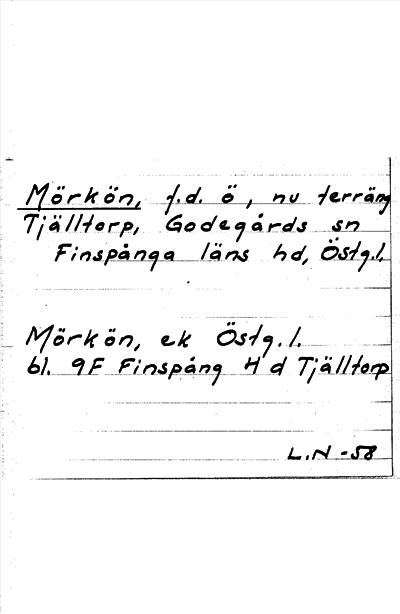 Mörkön, f.d. ö, nu terräng
Tjälltorp, Godegårds sn
Finspånga läns hd, Östg.l.
Mörkön, ek Östg.l.
bl. 9F Finspång H d Tjälltorp
L.N -58